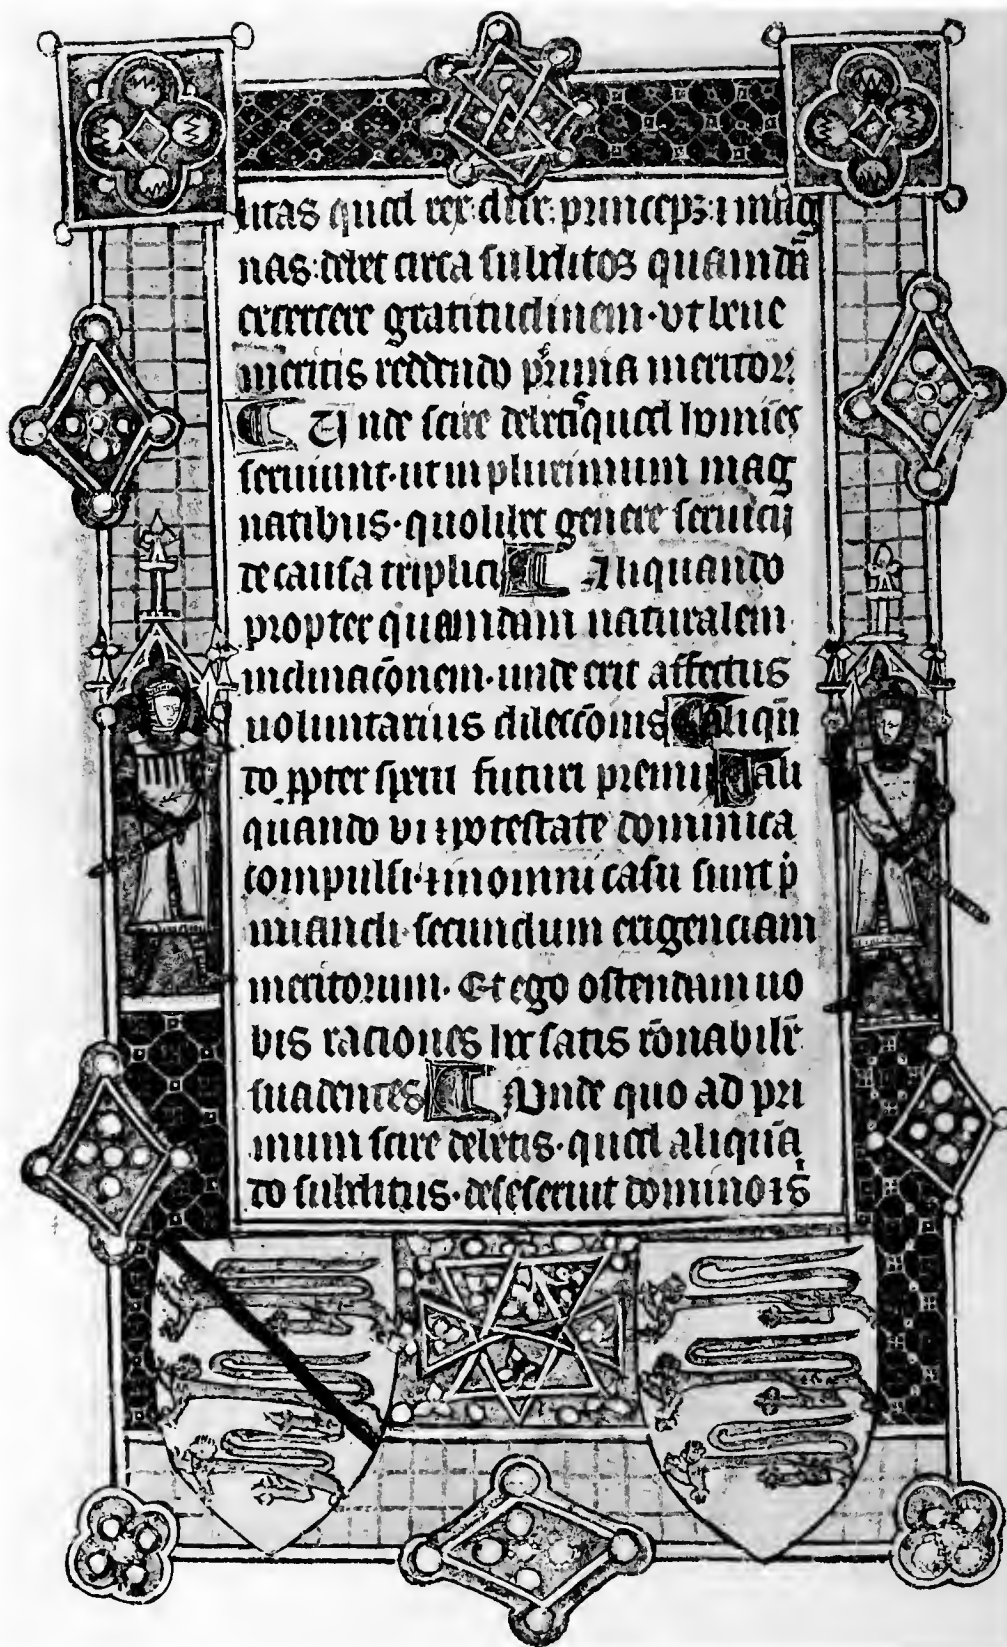 litas quod rex: dux: princeps: ⁊ mag
nas: debet circa subditos quamdā
exercere gratitudinem· vt bene
meritis reddendo p̄mia meritoꝝ
¶ Unde scire debetis quod homīes
seruiunt· ut in plurimum mag
natibus· quolibet genere seruicij
de causa triplici ¶ Aliquando
propter quamdam naturalem
inclinacōnem· unde erit affectus
uoluntarius dileccōnis ¶ aliquā
do ꝓpter spem futuri premij ¶ ali
quando vi ⁊ potestate dominica
compulsi· ⁊ in omni casu sunt p̄
miandi· secundum exigenciam
meritorum· Et ego ostendam uo
bis raciones hec satis rōnabilit̄
suadentes ¶ Unde quo ad pri
mum scire debetis· quod aliquā
do subditus· deseseruit domino ⁊ s̄